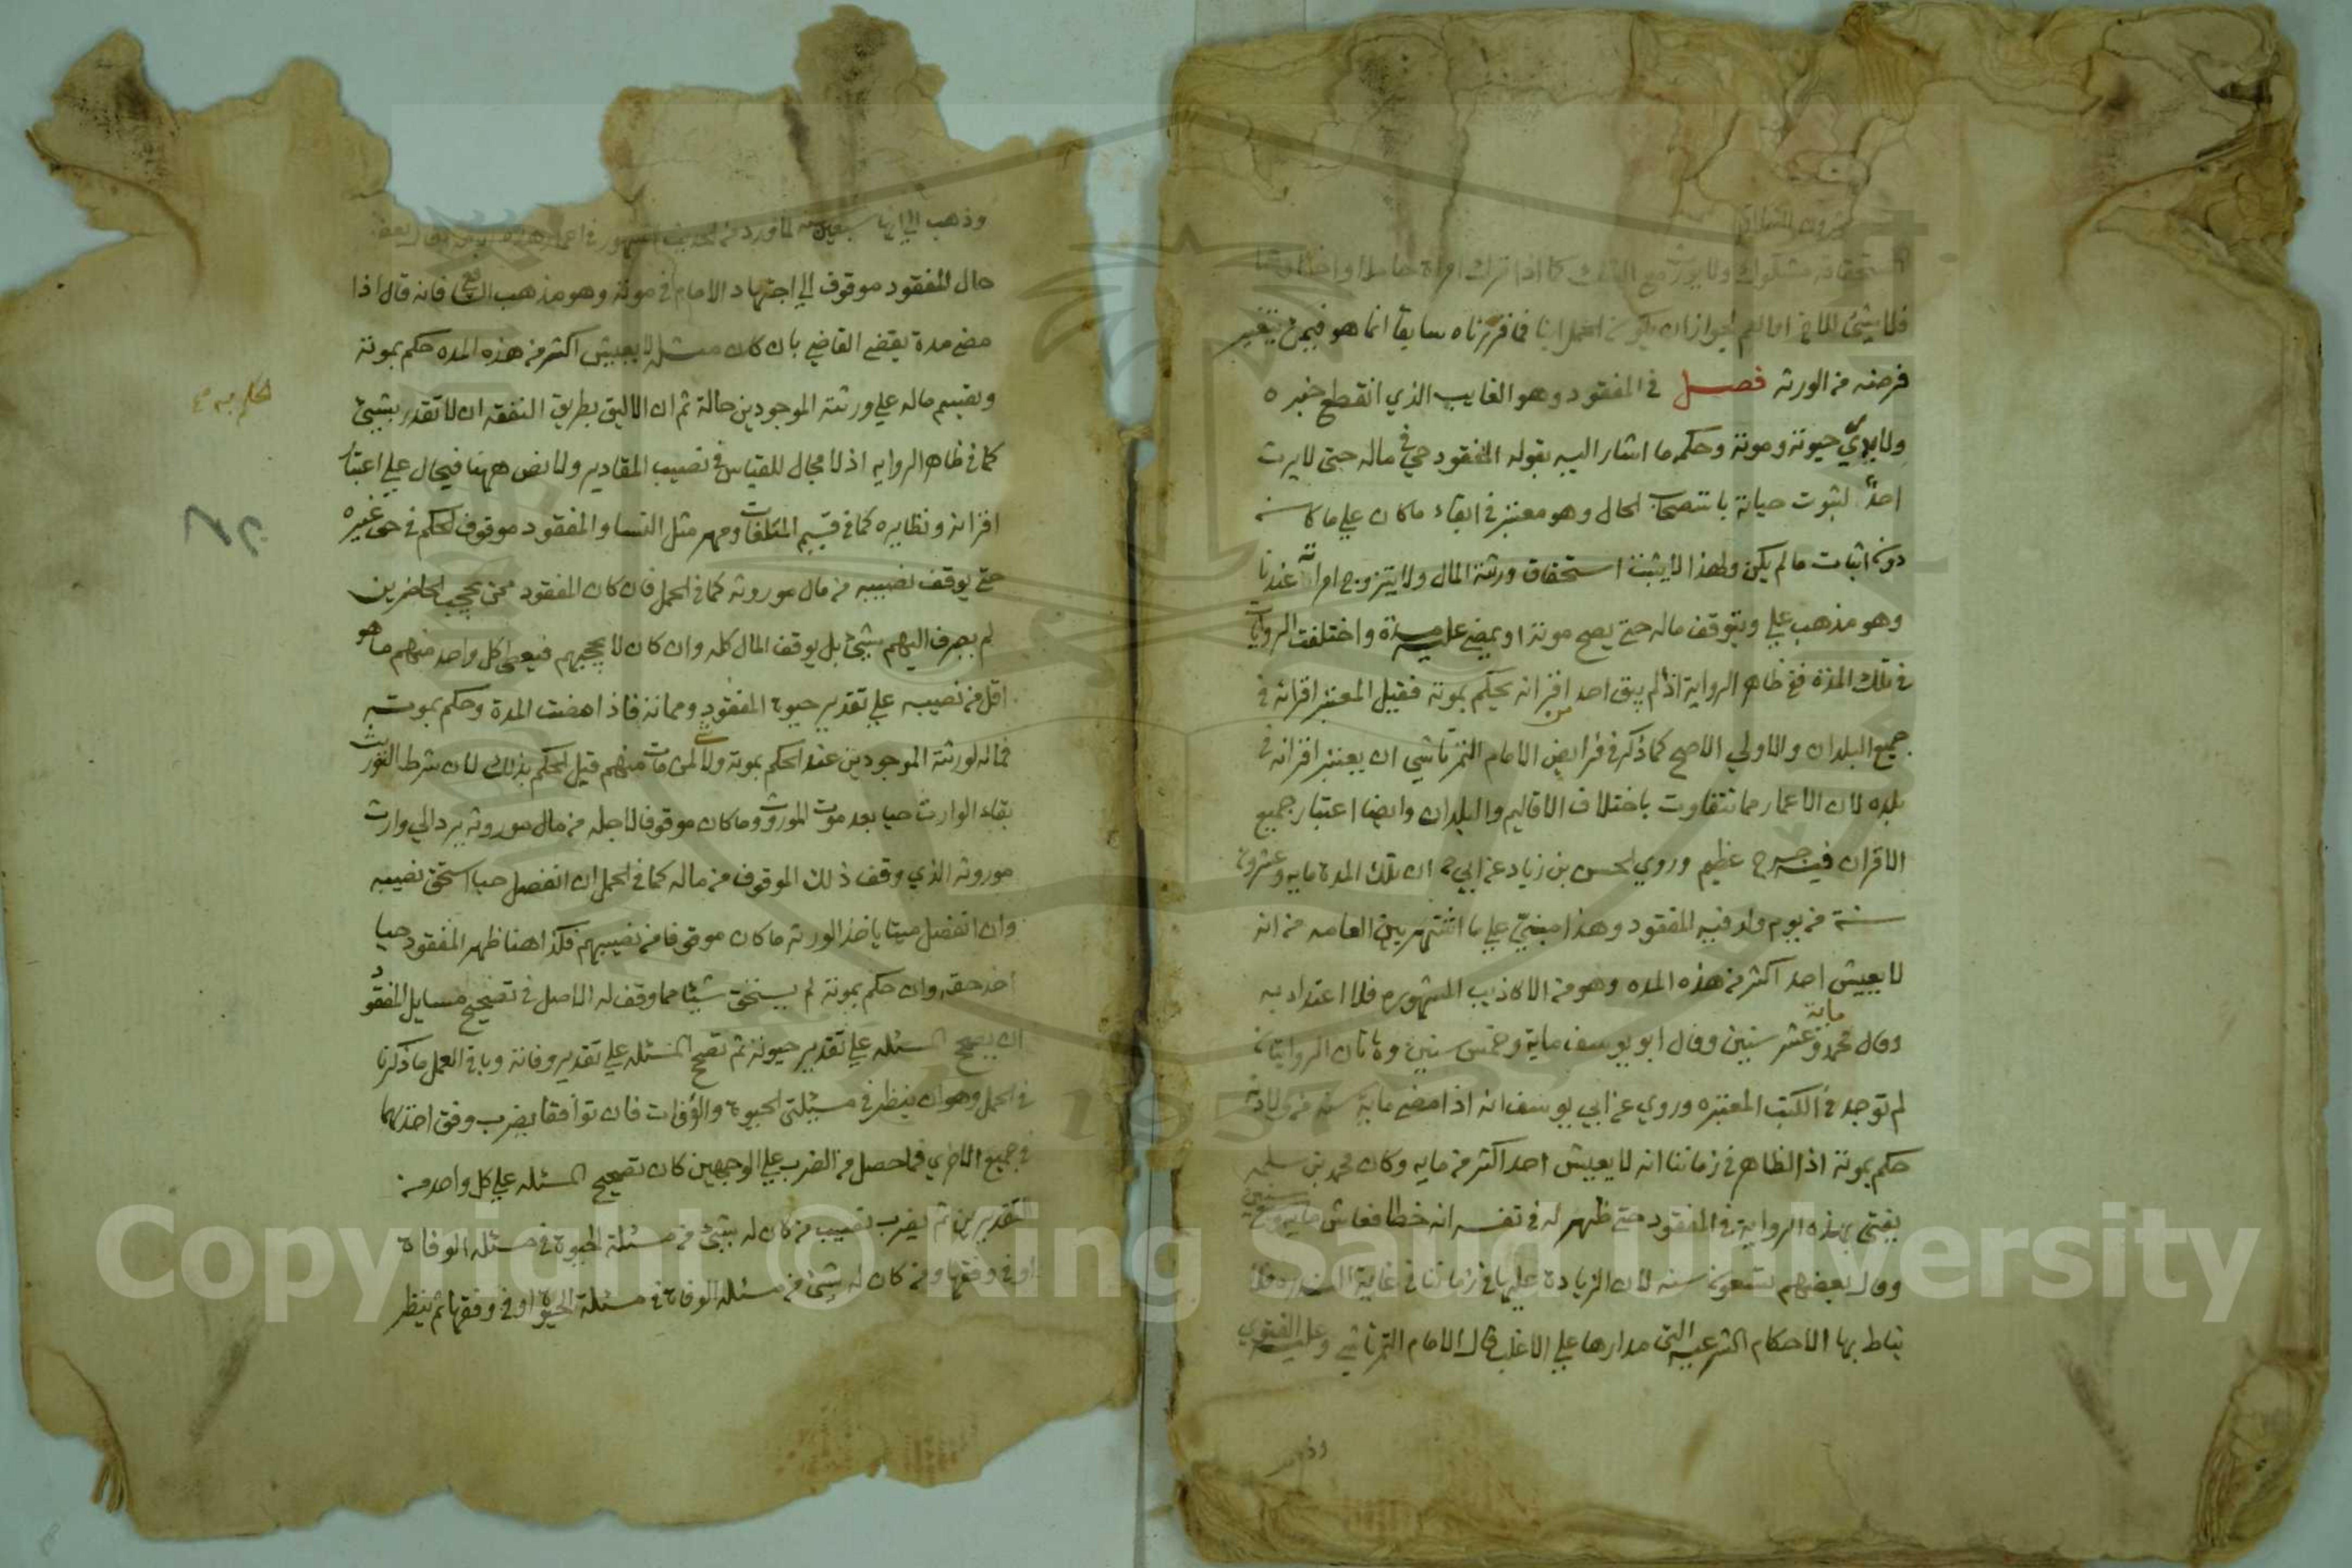 استحقاقه مشكوك ولا يورث مع الشك كما اذا ترك امراة حاملا و
فلا شئ للاخ لجواز ان يكون الحمل ابنا فما قررناه سابقا انما هو فيمن يتغير
فرضه من الورثه فصل في المفقود وهو الغايب الذي انقطع خبره
ولا يدري حيوته وموته وحكمه ما اشار اليه بقوله المفقود حي في ماله حتى لا يرث
احد لثبوت حياته باستصحاب الحال وهو معتبر في ابقاء ما كان علي ما كان
دون اثبات ما لم يكن ولهذا لا يثبت استحقاق ورثته المال ولا يتزوج امراته عندنا
وهو مذهب علي ويتوقف ماله حتي يصح موته او يمضي عليه مدة واختلفت الروايات
في تلك المدة ففي ظاهر الرواية اذا لم يبق احد من اقرانه يحكم بموته فقيل المعتبر اقرانه في
جميع البلدان والاولي الاصح كما ذكر في فرايض الامام التمرتاشي ان يعتبر اقرانه في
بلده لان الاعمار مما تتفاوت باختلاف الاقاليم والبلدان وايضا اعتبار جميع
الاقران فيه حرج عظيم وروي الحسن بن زياد عن ابي ح ان تلك المدة مايه وعشرون
سنة من يوم ولد فيه المفقود وهذا مبني علي ما اشتهر بين العامه من انه
لا يعيش احد اكثر من هذه المده وهو من الاكاذيب المشهوره فلا اعتداد به
وقال محمد ماية وعشر سنين وقال ابو يوسف ماية وخمس سنين وهاتان الروايتان
لم توجد في الكتب المعتبره وروي عن ابي يوسف انه اذا مضى ماية سنه من ولادته
حكم بموته اذ الظاهر في زماننا انه لا يعيش احد اكثر من مايه وكان محمد بن سلمه
يفتي بهذه الرواية في المفقود حتي ظهر له في نفسه انه خطا فعاش مايه و سنين
وقال بعضهم تسعون سنه لان الزيادة عليها في زماننا في غاية الندره فلا
يناط بها الاحكام الشرعيه التي مدارها علي الاغلب قال الامام التمرتاشي وعليه الفتوي
وذهب
وذهب
حال المفقود موقوف الي اجتهاد الامام في موته وهو مذهب الشافعي فانه قال اذا
مضي مدة يقضي القاضي بان كان مثله لا يعيش اكثر من هذه المده حكم بموته
ويقسم ماله علي ورثته الموجودين حالة ثم ان الاليق بطريق الفقه ان لا تقدر بشيئ
كما في ظاهر الروايه اذ لا مجال للقياس في نصيب المقادير ولا نص ههنا فيحال علي اعتبار
اقرانه ونظايره كما في قيم المتلفات ومهر مثل النسا والمفقود موقوف الحكم في حق غيره
حتي يوقف نصيبه من مال مورثه كما في الحمل فان كان المفقود ممن يحجب الحاضرين
لم يصرف اليهم بشيئ بل يوقف المال كله وان كان لا يحجبهم فيعطي كل واحد منهم ما هو
اقل من نصيبه علي تقدير حيوة المفقود ومماته فاذا مضت المدة وحكم بموته
فماله لورثته الموجودين عند الحكم بموته ولا شي لمن مات منهم قبل الحكم بذلك لان شرط التوريث
بقاء الوارث حيا بعد موت المورث وما كان موقوفا لاجله من مال مورثه يرد الي وارث
مورثه الذي وقف ذلك الموقوف من ماله كما في الحمل ان انفصل حيا استحق نصيبه
وان انفصل ميتا ياخذ الورثه ما كان موقوفا من نصيبهم فكذا اهنا ظهر المفقود حيا
اخذ حقه وان حكم بموته لم يستحق شيئا مما وقف له الاصل في تصحيح مسايل المفقود
ان يصحح المسئله علي تقدير حيوته ثم تصحح المسئله علي تقدير وفاته وباقي العمل ما ذكرنا
في الحمل وهو ان ينظر في مسئلتي الحيوة والوفات فان توافقا يضرب وفق احدهما
في جميع الاخري فما حصل من الضرب علي الوجهين كان تصحيح المسئله علي كل واحد من
التقديرين ثم يضرب نصيب من كان له بشيئ من مسئلة الحيوة في مسئله الوفاة
او في وفقها ومن كان له شيئ من مسئله الوفاة في مسئلة الحيوة او في وفقها ثم ينظر
حكم به
Copyright © King Saud University
1957